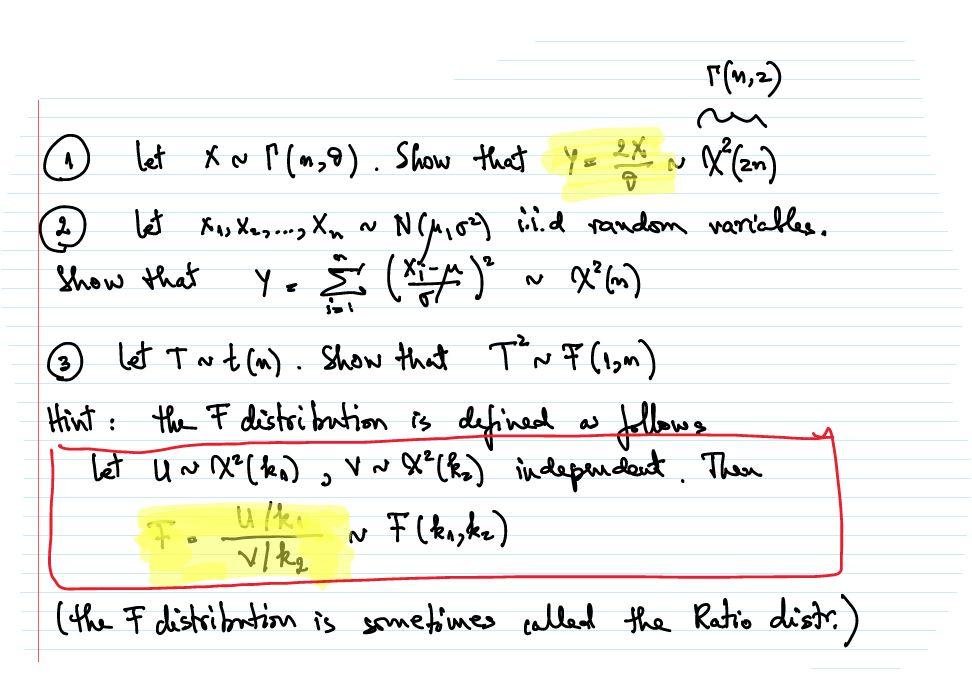 Γ(n,2)
① Let X ~ Γ(n,θ). Show that Y = 2X/θ ~ X²(2n)
② Let X₁, X₂, ..., Xₙ ~ N(μ, σ²) i.i.d random variables.
Show that Y = Σᵢ₌₁ⁿ ((Xᵢ-μ)/σ)² ~ X²(n)
③ Let T ~ t(n). Show that T² ~ F(1,n)
Hint : the F distribution is defined as follows
Let U ~ X²(k₁) , V ~ X²(k₂) independent. Then
F = (U/k₁)/(V/k₂) ~ F(k₁,k₂)
(the F distribution is sometimes called the Ratio distr.)